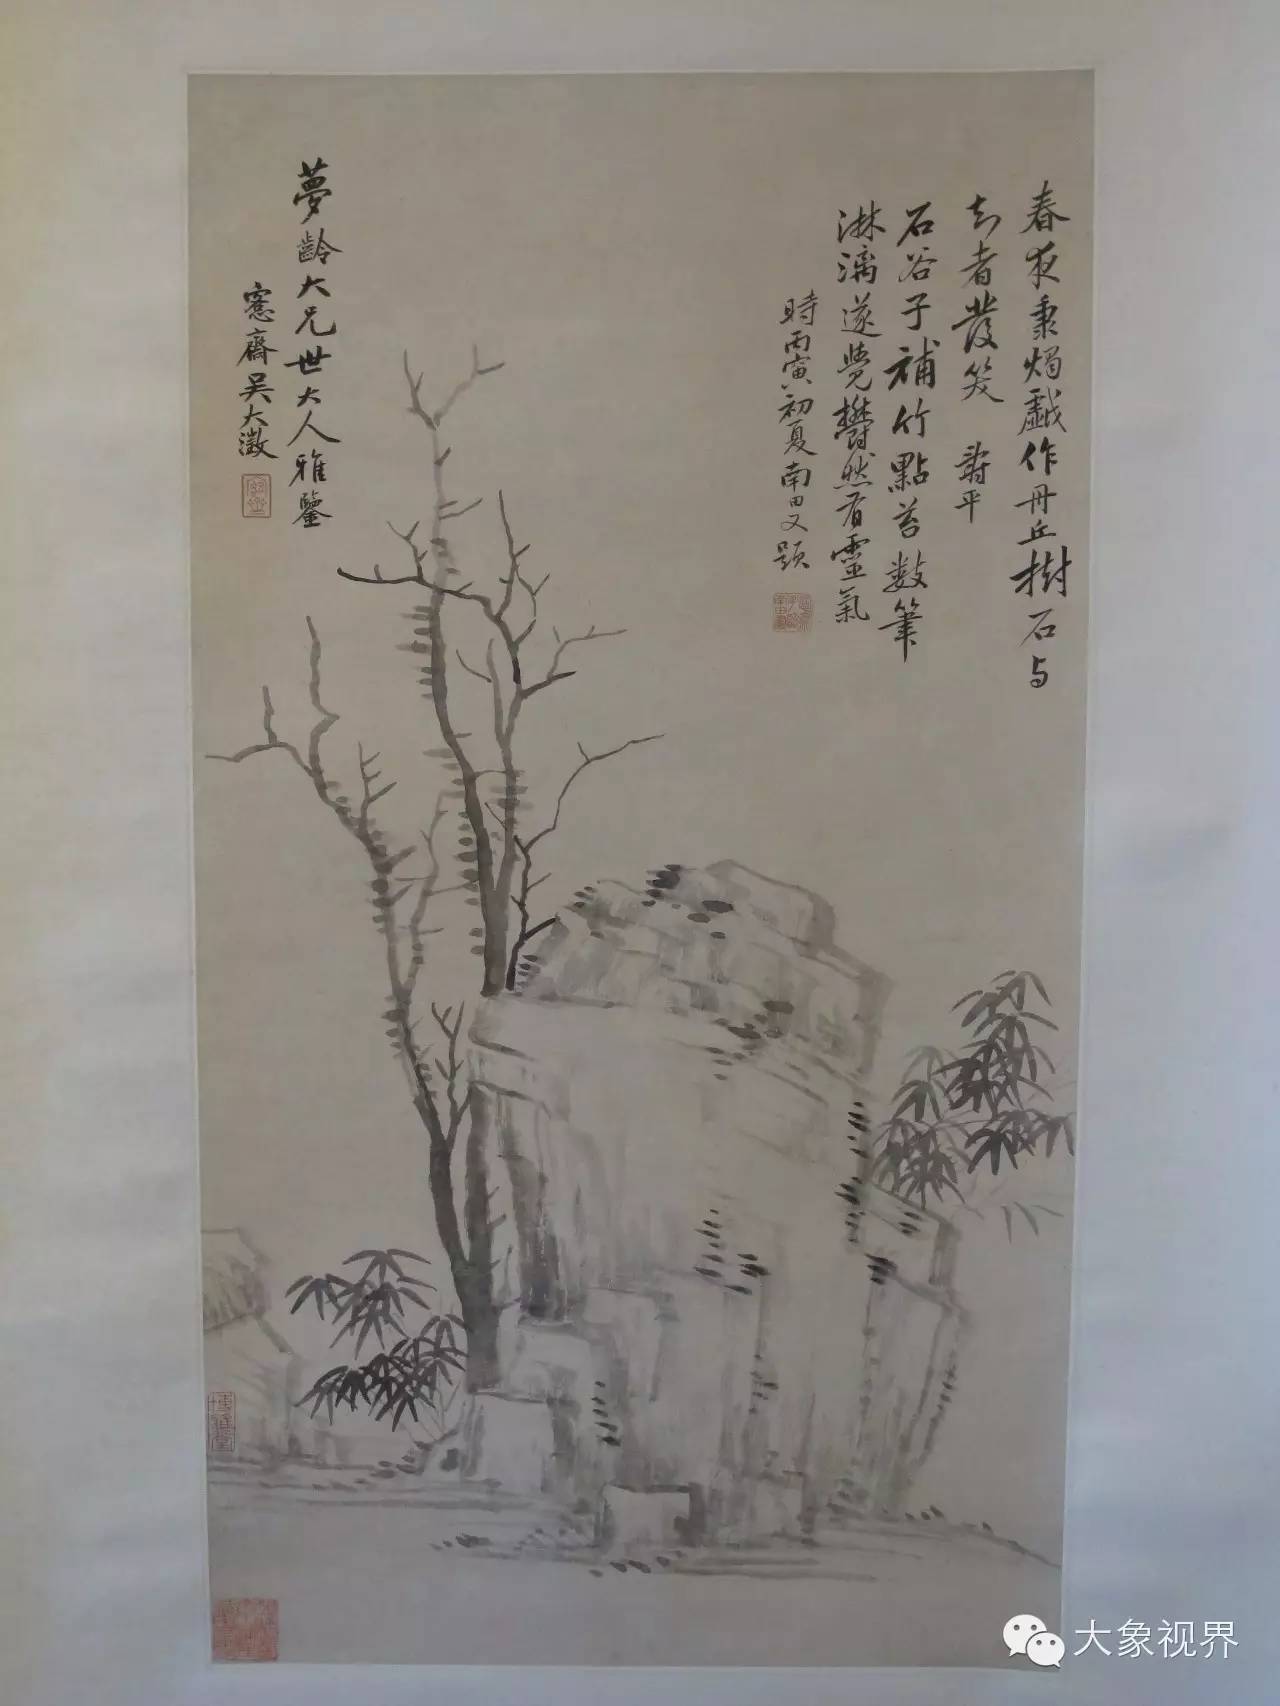 春夜秉燭戲作丹丘樹石与
知者發笑 壽平
石谷子補竹點苔數筆
淋漓遂覺欝然有靈氣
時丙寅初夏南田又題
夢齡大兄世大人雅鑒
愙齋吳大澂
博雅堂
大象视界